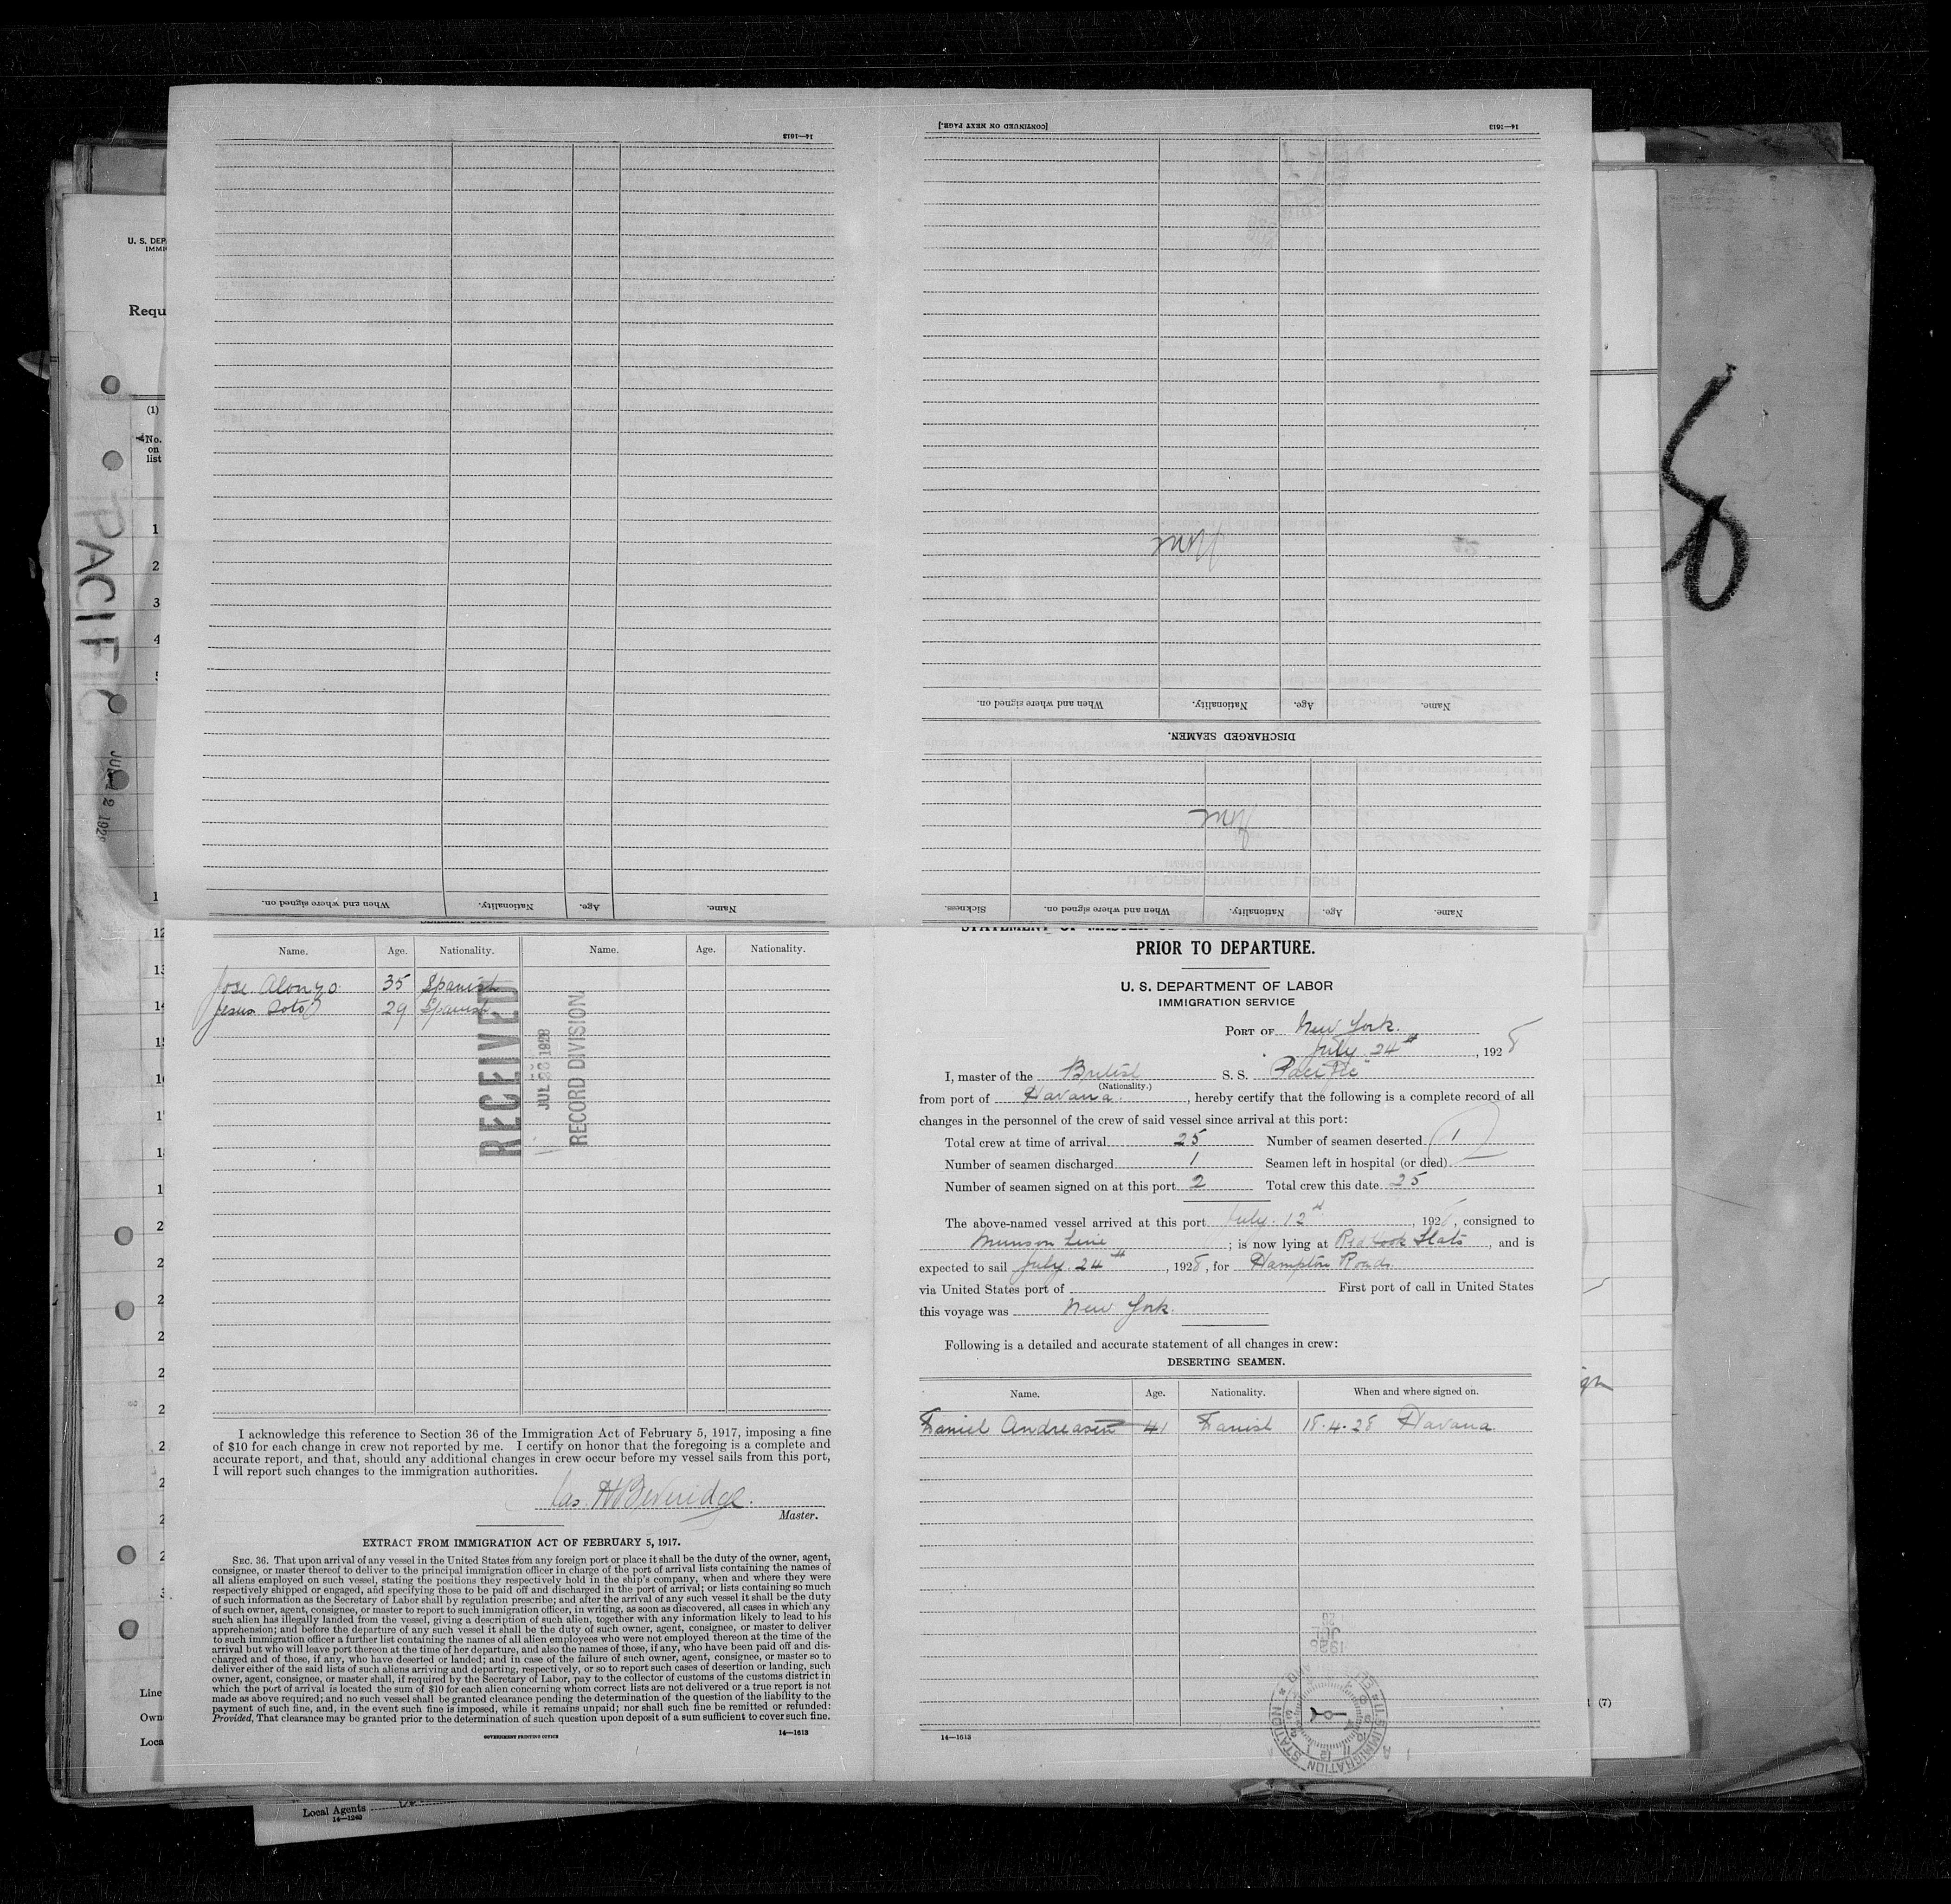 14—1613
[CONTINUED ON NEXT PAGE.]
14—1613
U. S. DEP
IMMI
Requ
(1)
No.
on
list
1
2
3
4
PACIFIC
Name. Age. Nationality. When and where signed on.
DISCHARGED SEAMEN.
Name. Age. Nationality. When and where signed on. Sickness.
Name. Age. Nationality. When and where signed on.
Name. Age. Nationality. Name. Age. Nationality.
Jose Alonzo 35 Spanish
Jesus Soto 29 Spanish
RECEIVED
JUL 1928
RECORD DIVISION
I acknowledge this reference to Section 36 of the Immigration Act of February 5, 1917, imposing a fine
of $10 for each change in crew not reported by me. I certify on honor that the foregoing is a complete and
accurate report, and that, should any additional changes in crew occur before my vessel sails from this port,
I will report such changes to the immigration authorities.
Jas. H Beveridge.
Master.
EXTRACT FROM IMMIGRATION ACT OF FEBRUARY 5, 1917.
SEC. 36. That upon arrival of any vessel in the United States from any foreign port or place it shall be the duty of the owner, agent,
consignee, or master thereof to deliver to the principal immigration officer in charge of the port of arrival lists containing the names of
all aliens employed on such vessel, stating the positions they respectively hold in the ship's company, when and where they were
respectively shipped or engaged, and specifying those to be paid off and discharged in the port of arrival; or lists containing so much
of such information as the Secretary of Labor shall by regulation prescribe; and after the arrival of any such vessel it shall be the duty
of such owner, agent, consignee, or master to report to such immigration officer, in writing, as soon as discovered, all cases in which any
such alien has illegally landed from the vessel, giving a description of such alien, together with any information likely to lead to his
apprehension; and before the departure of any such vessel it shall be the duty of such owner, agent, consignee, or master to deliver
to such immigration officer a further list containing the names of all alien employees who were not employed thereon at the time of the
arrival but who will leave port thereon at the time of her departure, and also the names of those, if any, who have been paid off and dis-
charged and of those, if any, who have deserted or landed; and in case of the failure of such owner, agent, consignee, or master so to
deliver either of the said lists of such aliens arriving and departing, respectively, or so to report such cases of desertion or landing, such
owner, agent, consignee, or master shall, if required by the Secretary of Labor, pay to the collector of customs of the customs district in
which the port of arrival is located the sum of $10 for each alien concerning whom correct lists are not delivered or a true report is not
made as above required; and no such vessel shall be granted clearance pending the determination of the question of the liability to the
payment of such fine, and, in the event such fine is imposed, while it remains unpaid; nor shall such fine be remitted or refunded:
Provided, That clearance may be granted prior to the determination of such question upon deposit of a sum sufficient to cover such fine.
GOVERNMENT PRINTING OFFICE
14—1613
PRIOR TO DEPARTURE.
U. S. DEPARTMENT OF LABOR
IMMIGRATION SERVICE
PORT OF New York.
July 24th, 1928
I, master of the British S. S. "Pacific"
(Nationality.)
from port of Havana., hereby certify that the following is a complete record of all
changes in the personnel of the crew of said vessel since arrival at this port:
Total crew at time of arrival 25 Number of seamen deserted 1
Number of seamen discharged 1 Seamen left in hospital (or died)
Number of seamen signed on at this port 2 Total crew this date 25
The above-named vessel arrived at this port July. 12th, 1928, consigned to
Munson Line; is now lying at Red Hook Flats, and is
expected to sail July. 24th, 1928, for Hampton Roads.
via United States port of First port of call in United States
this voyage was New York.
Following is a detailed and accurate statement of all changes in crew:
DESERTING SEAMEN.
Name. Age. Nationality. When and where signed on.
Daniel Andreasen 41 Danish 18.4.28 Havana
1928
JUL
U.S. IMMIGRATION STATION
14—1613
Line
Own
Loca
(7)
Local Agents
14—1240